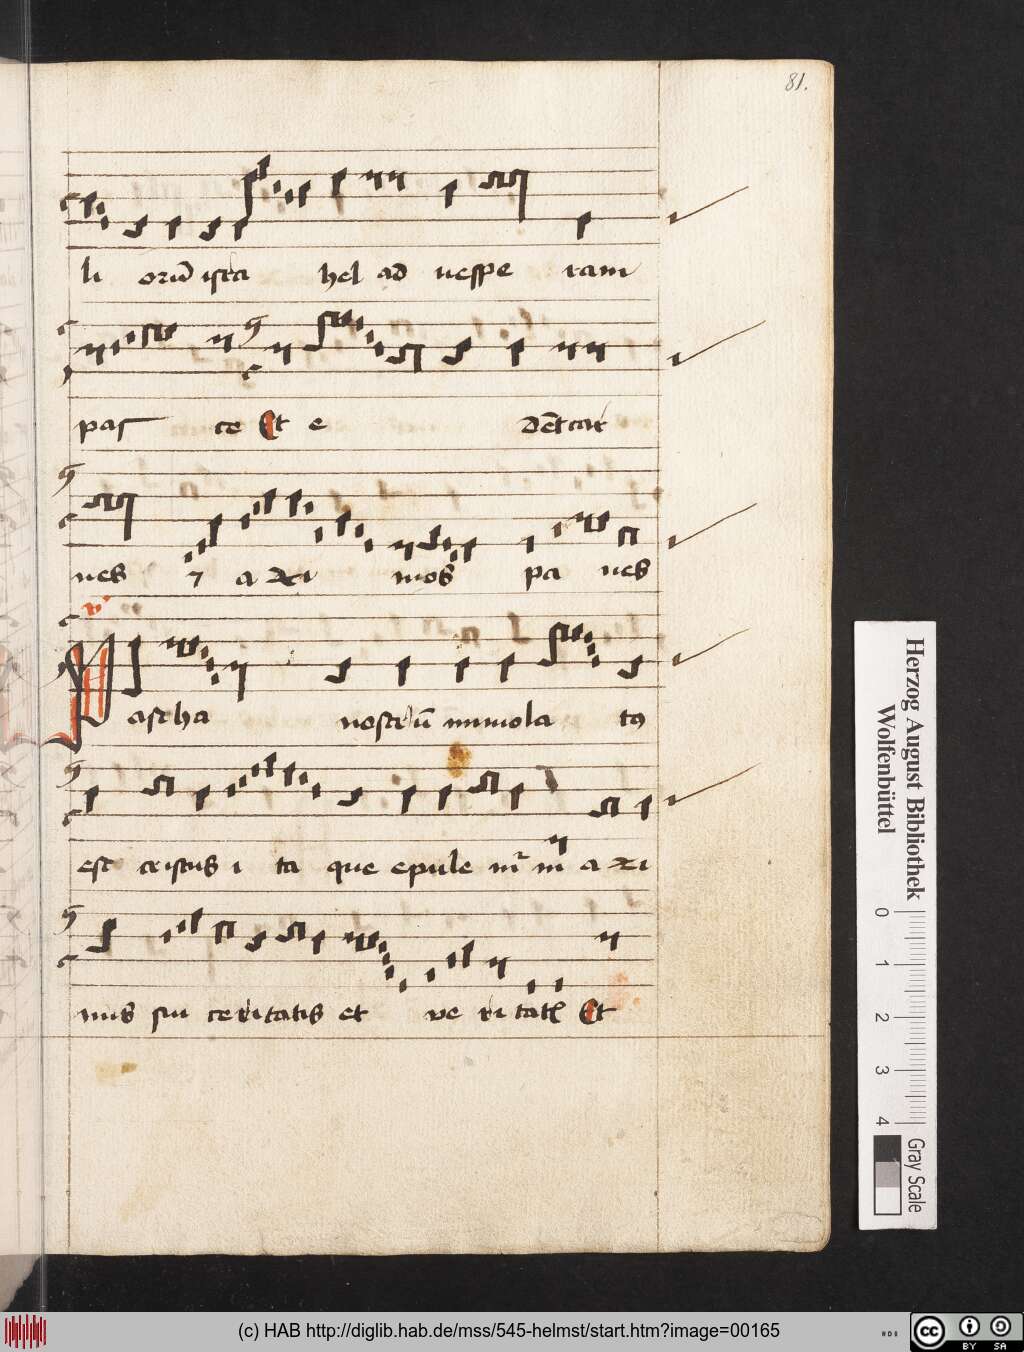 81.
li orū isra hel ad uespe ram
pas ce Et e dēt car
nes ⁊ a zi mos pa nes
Pascha nostrū immola tꝰ
est cristus i ta que epule mr̄ in̄ a zi
mis sin ceritatis et ve ritatꝭ Et
Herzog August Bibliothek
Wolfenbüttel
0 1 2 3 4
Gray Scale
(c) HAB http://diglib.hab.de/mss/545-helmst/start.htm?image=00165
cc BY SA